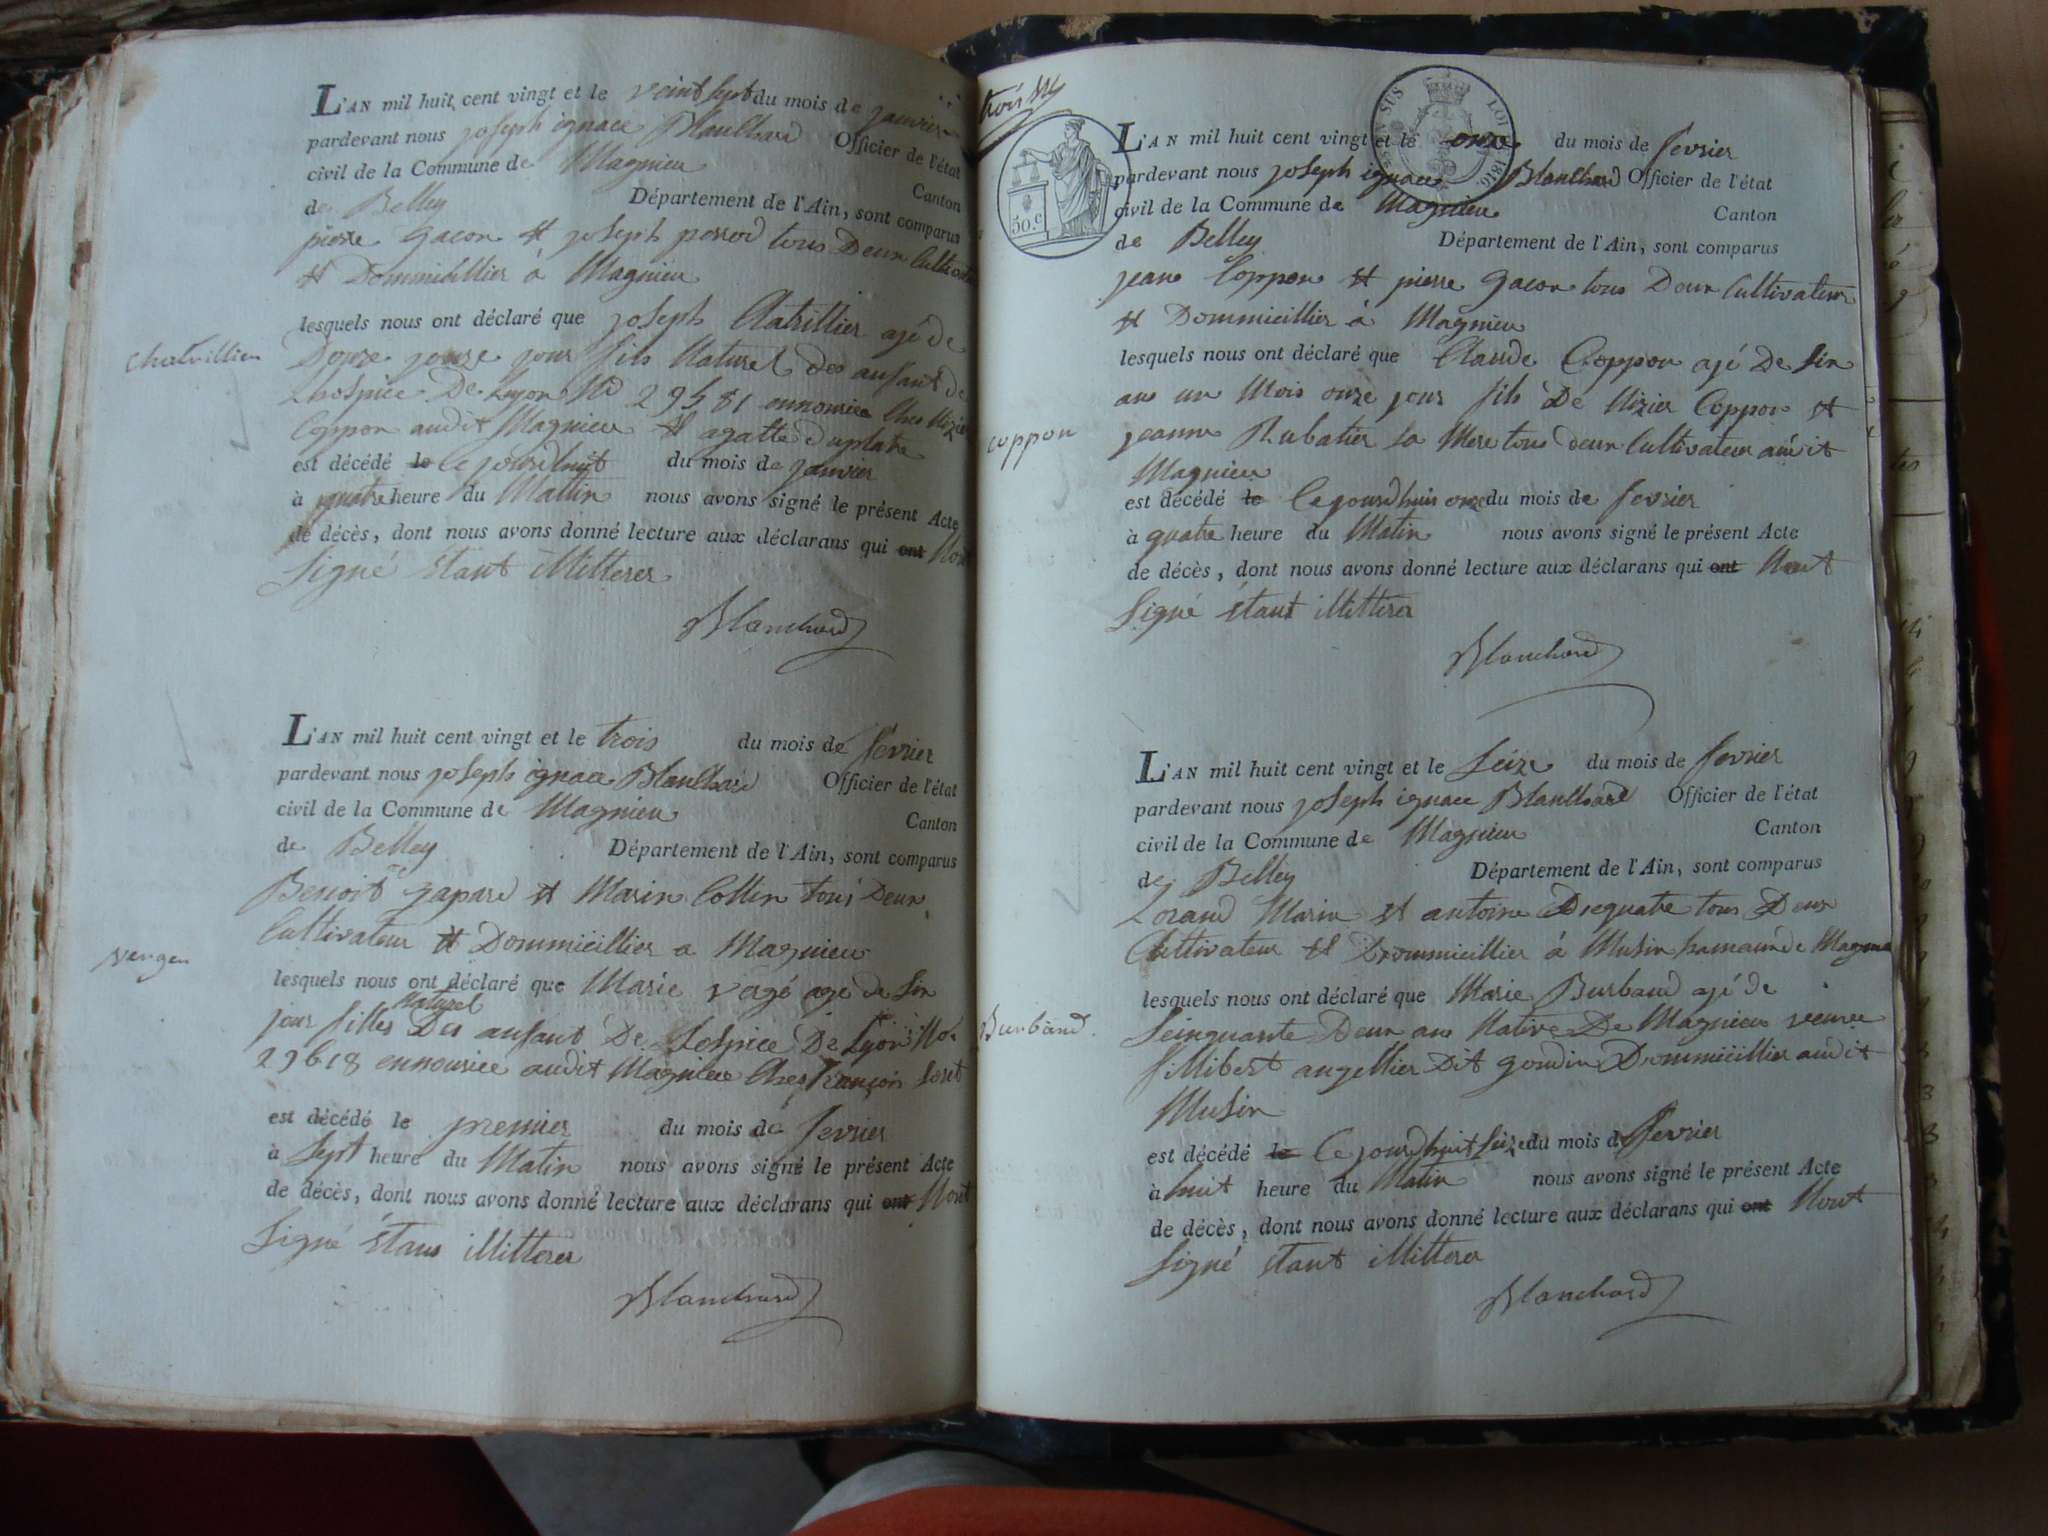 L'AN mil huit cent vingt et le veint sept du mois de janvier
pardevant nous joseph ignace Blanlhard Officier de l'état
civil de la Commune de Magnieu Canton
de Belley Département de l'Ain, sont comparus
pierre gacon et joseph perrod tous Deux Cultivateur
et Dommicillier à Magnieu
lesquels nous ont déclaré que joseph ajé de
Chatvillien
Douze jour fils Naturel des anfant de
Lhospice De Lyon No 29581 ennourice Ches Nizier
Coppon audit Magnieu et agatte duplatre
est décédé le Ce jourdhuit du mois de janvier
à quatre heure du Mattin nous avons signé le présent Acte
de décès, dont nous avons donné lecture aux déclarans qui ont Nont
Signé Étant illitterer
Blanchard
L'AN mil huit cent vingt et le trois du mois de fevrier
pardevant nous joseph ignace Blanlhard Officier de l'état
civil de la Commune de Magnieu Canton
de Belley Département de l'Ain, sont comparus
Benoit gapard et Marin Collin tous Deux
Cultivateur et Dommicillier a Magnieu
vergen
lesquels nous ont déclaré que Marie vergé age de Six
Naturel
jour filles Des anfant De Lospice De Lyon No.
29618 ennourice audit Magnieu Ches françois
est décédé le premier du mois de fevrier
à Sept heure du Matin nous avons signé le présent Acte
de décès, dont nous avons donné lecture aux déclarans qui ont Nont
Signé Étans illitterer
Blanchard
trois
SUS LOI 1816
50.c
L'AN mil huit cent vingt et le onze du mois de fevrier
pardevant nous joseph ignace Blanlhard Officier de l'état
civil de la Commune de Magnieu Canton
de Belley Département de l'Ain, sont comparus
jean Coppon et pierre gacon tous Deux Cultivateur
et Dommicillier à Magnieu
lesquels nous ont déclaré que Claude Coppon ajé De Six
an un Mois onze jour fils De Nizier Coppon et
coppon
jeanne Rubatier sa Mere tous deux Cultivateur audit
Magnieu
est décédé le Cejourdhuis onze du mois de fevrier
à quatre heure du Matin nous avons signé le présent Acte
de décès, dont nous avons donné lecture aux déclarans qui ont Nont
Signé étant illitterer
Blanchard
L'AN mil huit cent vingt et le Seize du mois de fevrier
pardevant nous joseph ignace Blanlhard Officier de l'état
civil de la Commune de Magnieu Canton
de Belley Département de l'Ain, sont comparus
Marin et antoine tous Deux
Cultivateur et Dommicillier à Musin hamaun de Magnieu
lesquels nous ont déclaré que Marie Burband ajé de
Burband.
Seinquante Deux an Native De Magnieu veuve
fillibert angellier Dit goudin Dommicillier audit
Musin
est décédé le Ce jourdhuit Seize du mois de fevrier
à huit heure du Matin nous avons signé le présent Acte
de décès, dont nous avons donné lecture aux déclarans qui ont Nont
Signé étant illitterer
Blanchard